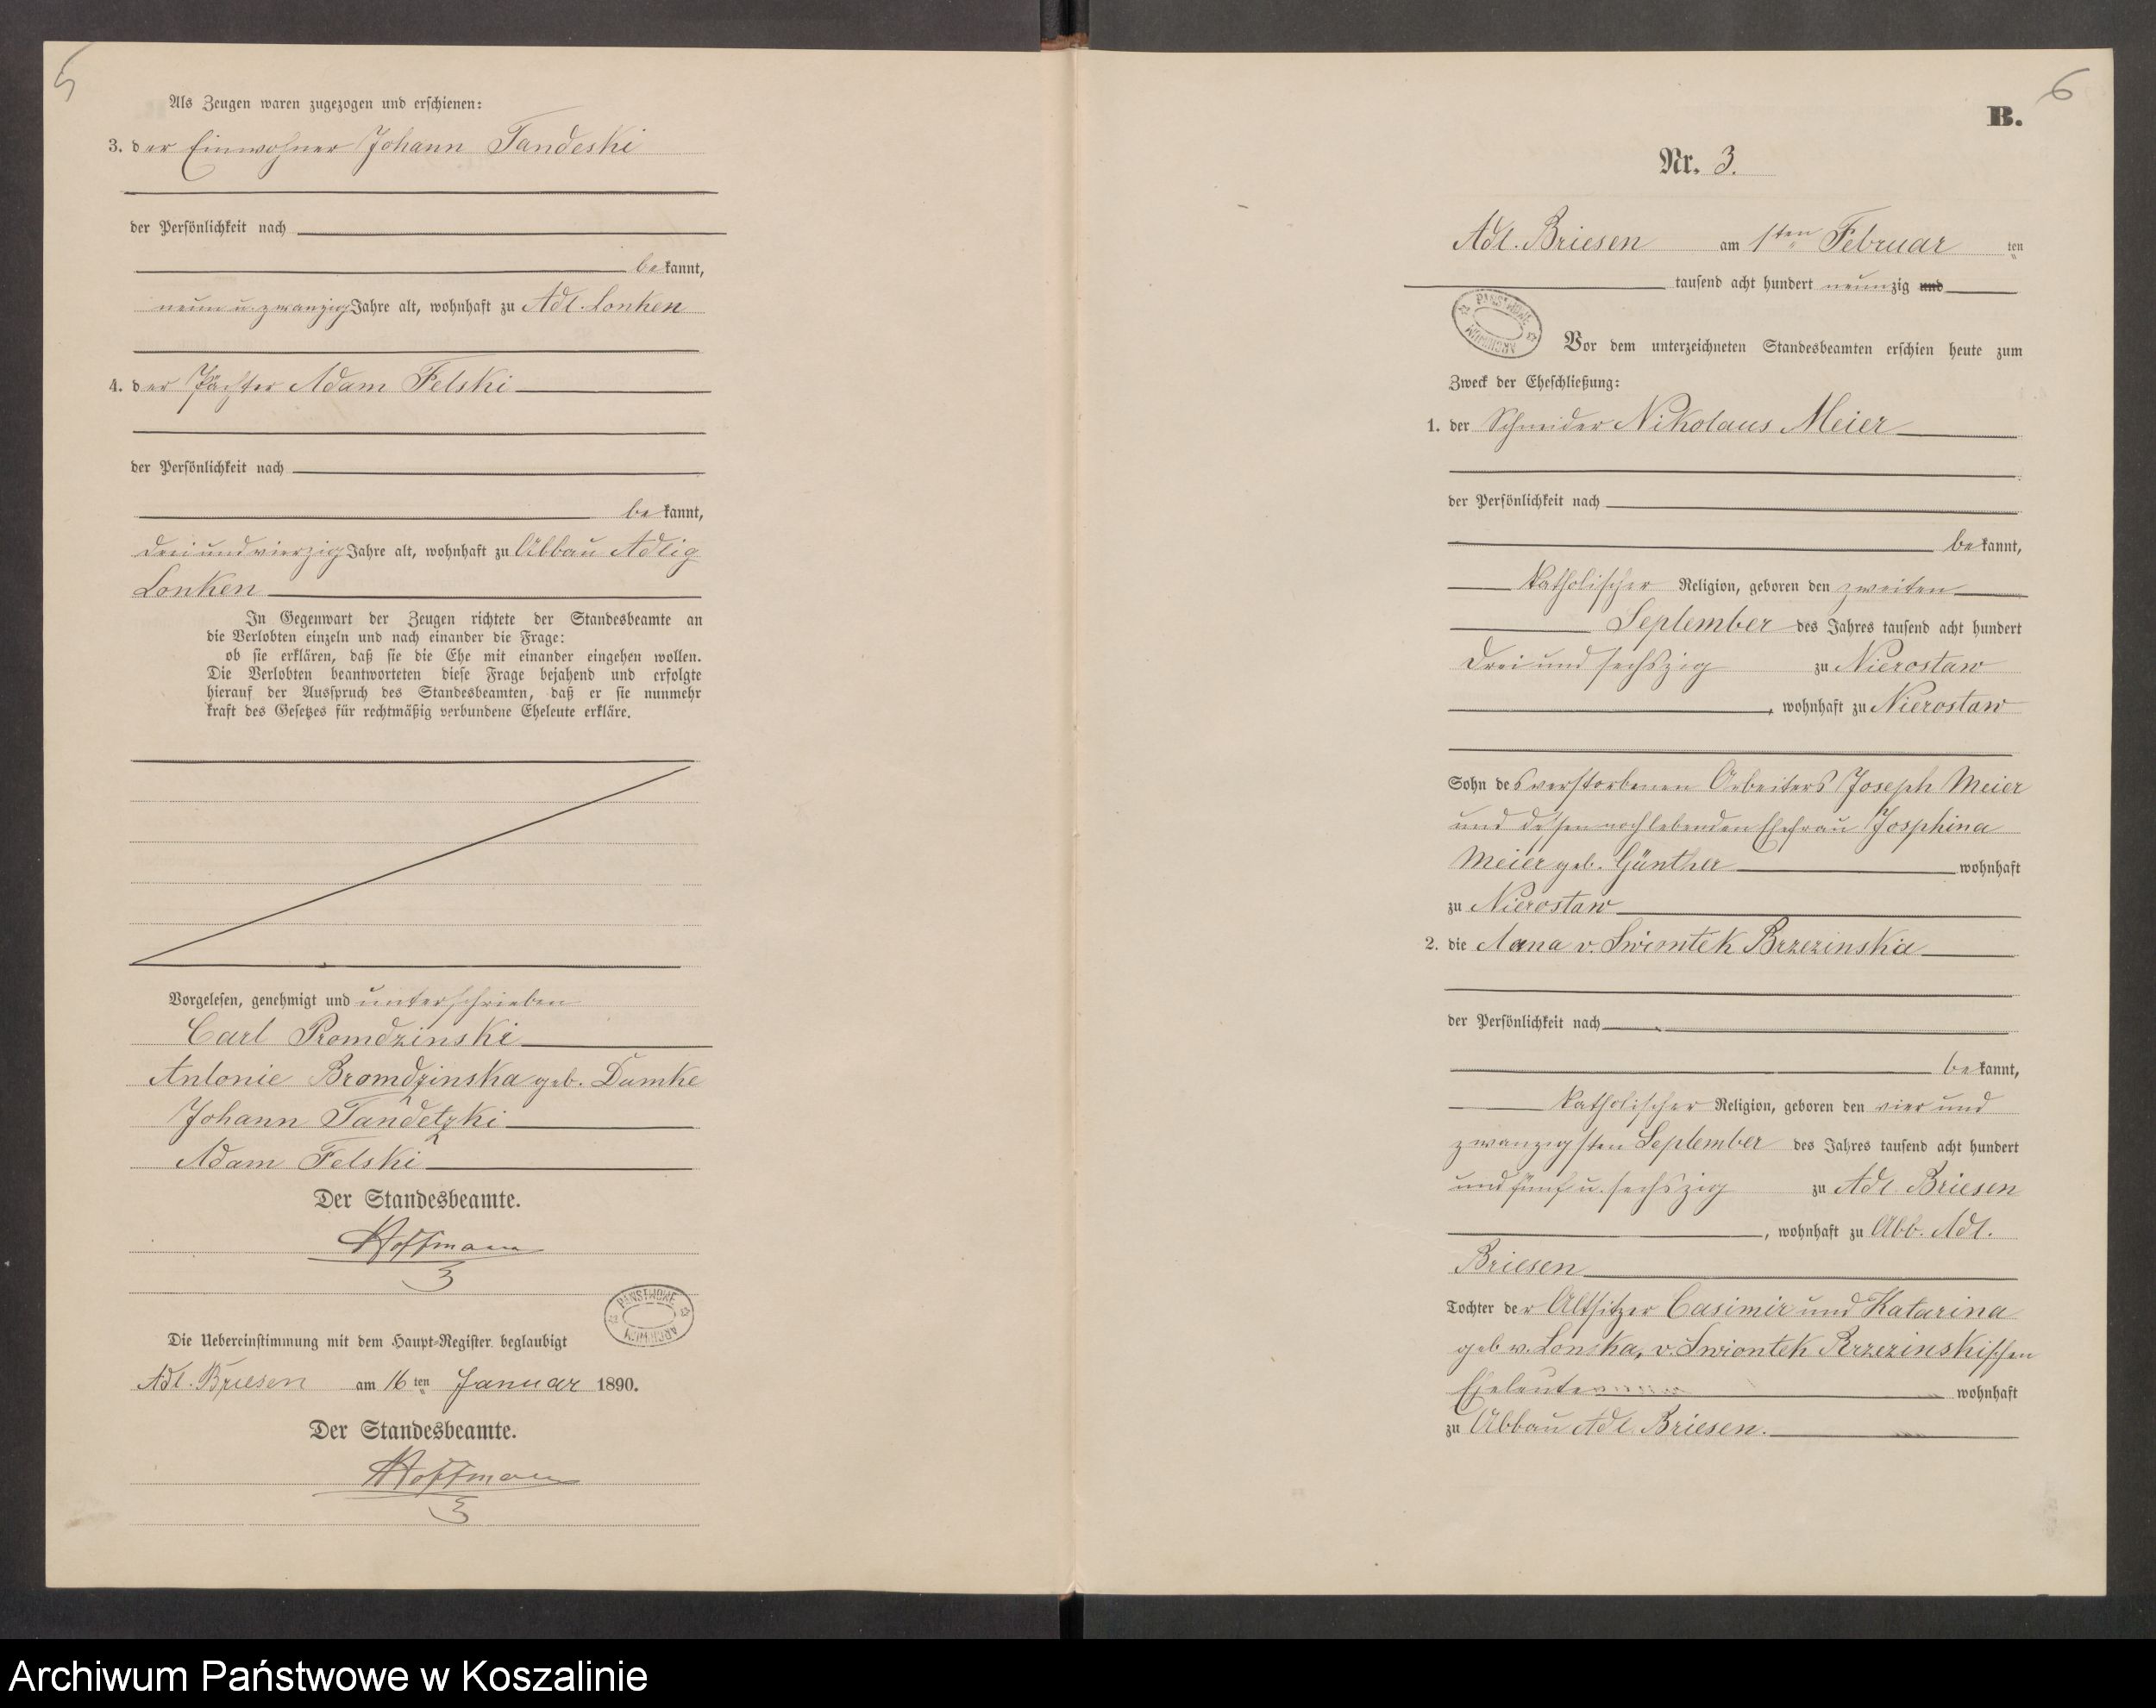 5
Als Zeugen waren zugezogen und erschienen:
3. der Einwohner Johann Tandeski
der Persönlichkeit nach
bekannt,
neun u. zwanzig Jahre alt, wohnhaft zu Adl. Lonken
4. der Pächter Adam Felski
der Persönlichkeit nach
bekannt,
drei und vierzig Jahre alt, wohnhaft zu Abbau Adlig
Lonken
In Gegenwart der Zeugen richtete der Standesbeamte an
die Verlobten einzeln und nach einander die Frage:
ob sie erklären, daß sie die Ehe mit einander eingehen wollen.
Die Verlobten beantworteten diese Frage bejahend und erfolgte
hierauf der Ausspruch des Standesbeamten, daß er sie nunmehr
kraft des Gesetzes für rechtmäßig verbundene Eheleute erkläre.
Vorgelesen, genehmigt und unterschrieben
Carl Bromdzinski
Antonie Bromdzinska geb. Damke
Johann Tandetzki
Adam Felski
Der Standesbeamte.
Hoffmann
PAŃSTWOWE ARCHIWUM
Die Uebereinstimmung mit dem Haupt-Register beglaubigt
Adl. Briesen am 16ten Januar 1890.
Der Standesbeamte.
Hoffmann
6
B.
Nr. 3.
Adl. Briesen am 1sten Februar ten
tausend acht hundert neunzig und
PAŃSTWOWE ARCHIWUM
Vor dem unterzeichneten Standesbeamten erschien heute zum
Zweck der Eheschließung:
1. der Schneider Nikolaus Meier
der Persönlichkeit nach
bekannt,
katholischer Religion, geboren den zweiten
September des Jahres tausend acht hundert
drei und sechszig zu Nierostaw
, wohnhaft zu Nierostaw
Sohn des verstorbenen Arbeiters Joseph Meier
und dessen noch lebenden Ehefrau Josphina
Meier geb. Günther wohnhaft
zu Nierostaw
2. die Anna v. Swiontek Brzezinska
der Persönlichkeit nach
bekannt,
katholischer Religion, geboren den vier und
zwanzigsten September des Jahres tausend acht hundert
und fünf u. sechszig zu Adl. Briesen
, wohnhaft zu Abb. Adl.
Briesen
Tochter der Altsitzer Casimir und Katarina
geb v. Lonska, v. Swiontek Brzezinskischen
Eheleute wohnhaft
zu Abbau Adl. Briesen.
Archiwum Państwowe w Koszalinie